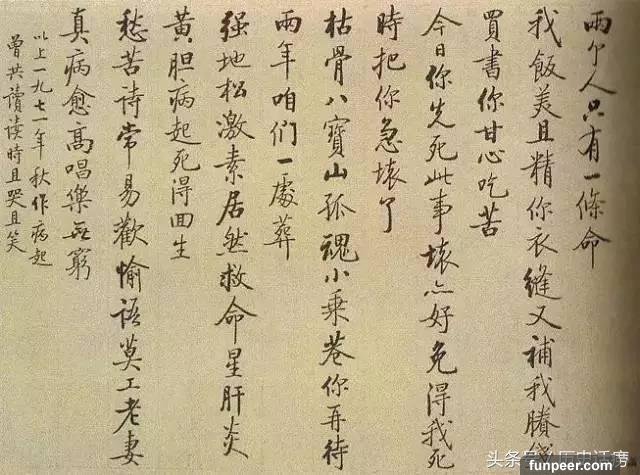 兩个人只有一條命
我飯美且精你衣縫又補我賸錢
買書你甘心吃苦
今日你先死此事壞亦好免得我死
時把你急壞了
枯骨八寶山孤魂小乘巷你再待
兩年咱們一處葬
强地松激素居然救命星肝炎
黄胆病起死得回生
愁苦詩常易歡愉語莫工老妻
真病愈高唱樂无窮
以上一九七一年秋作病起
曾共讀读時且哭且笑
funpeer.com